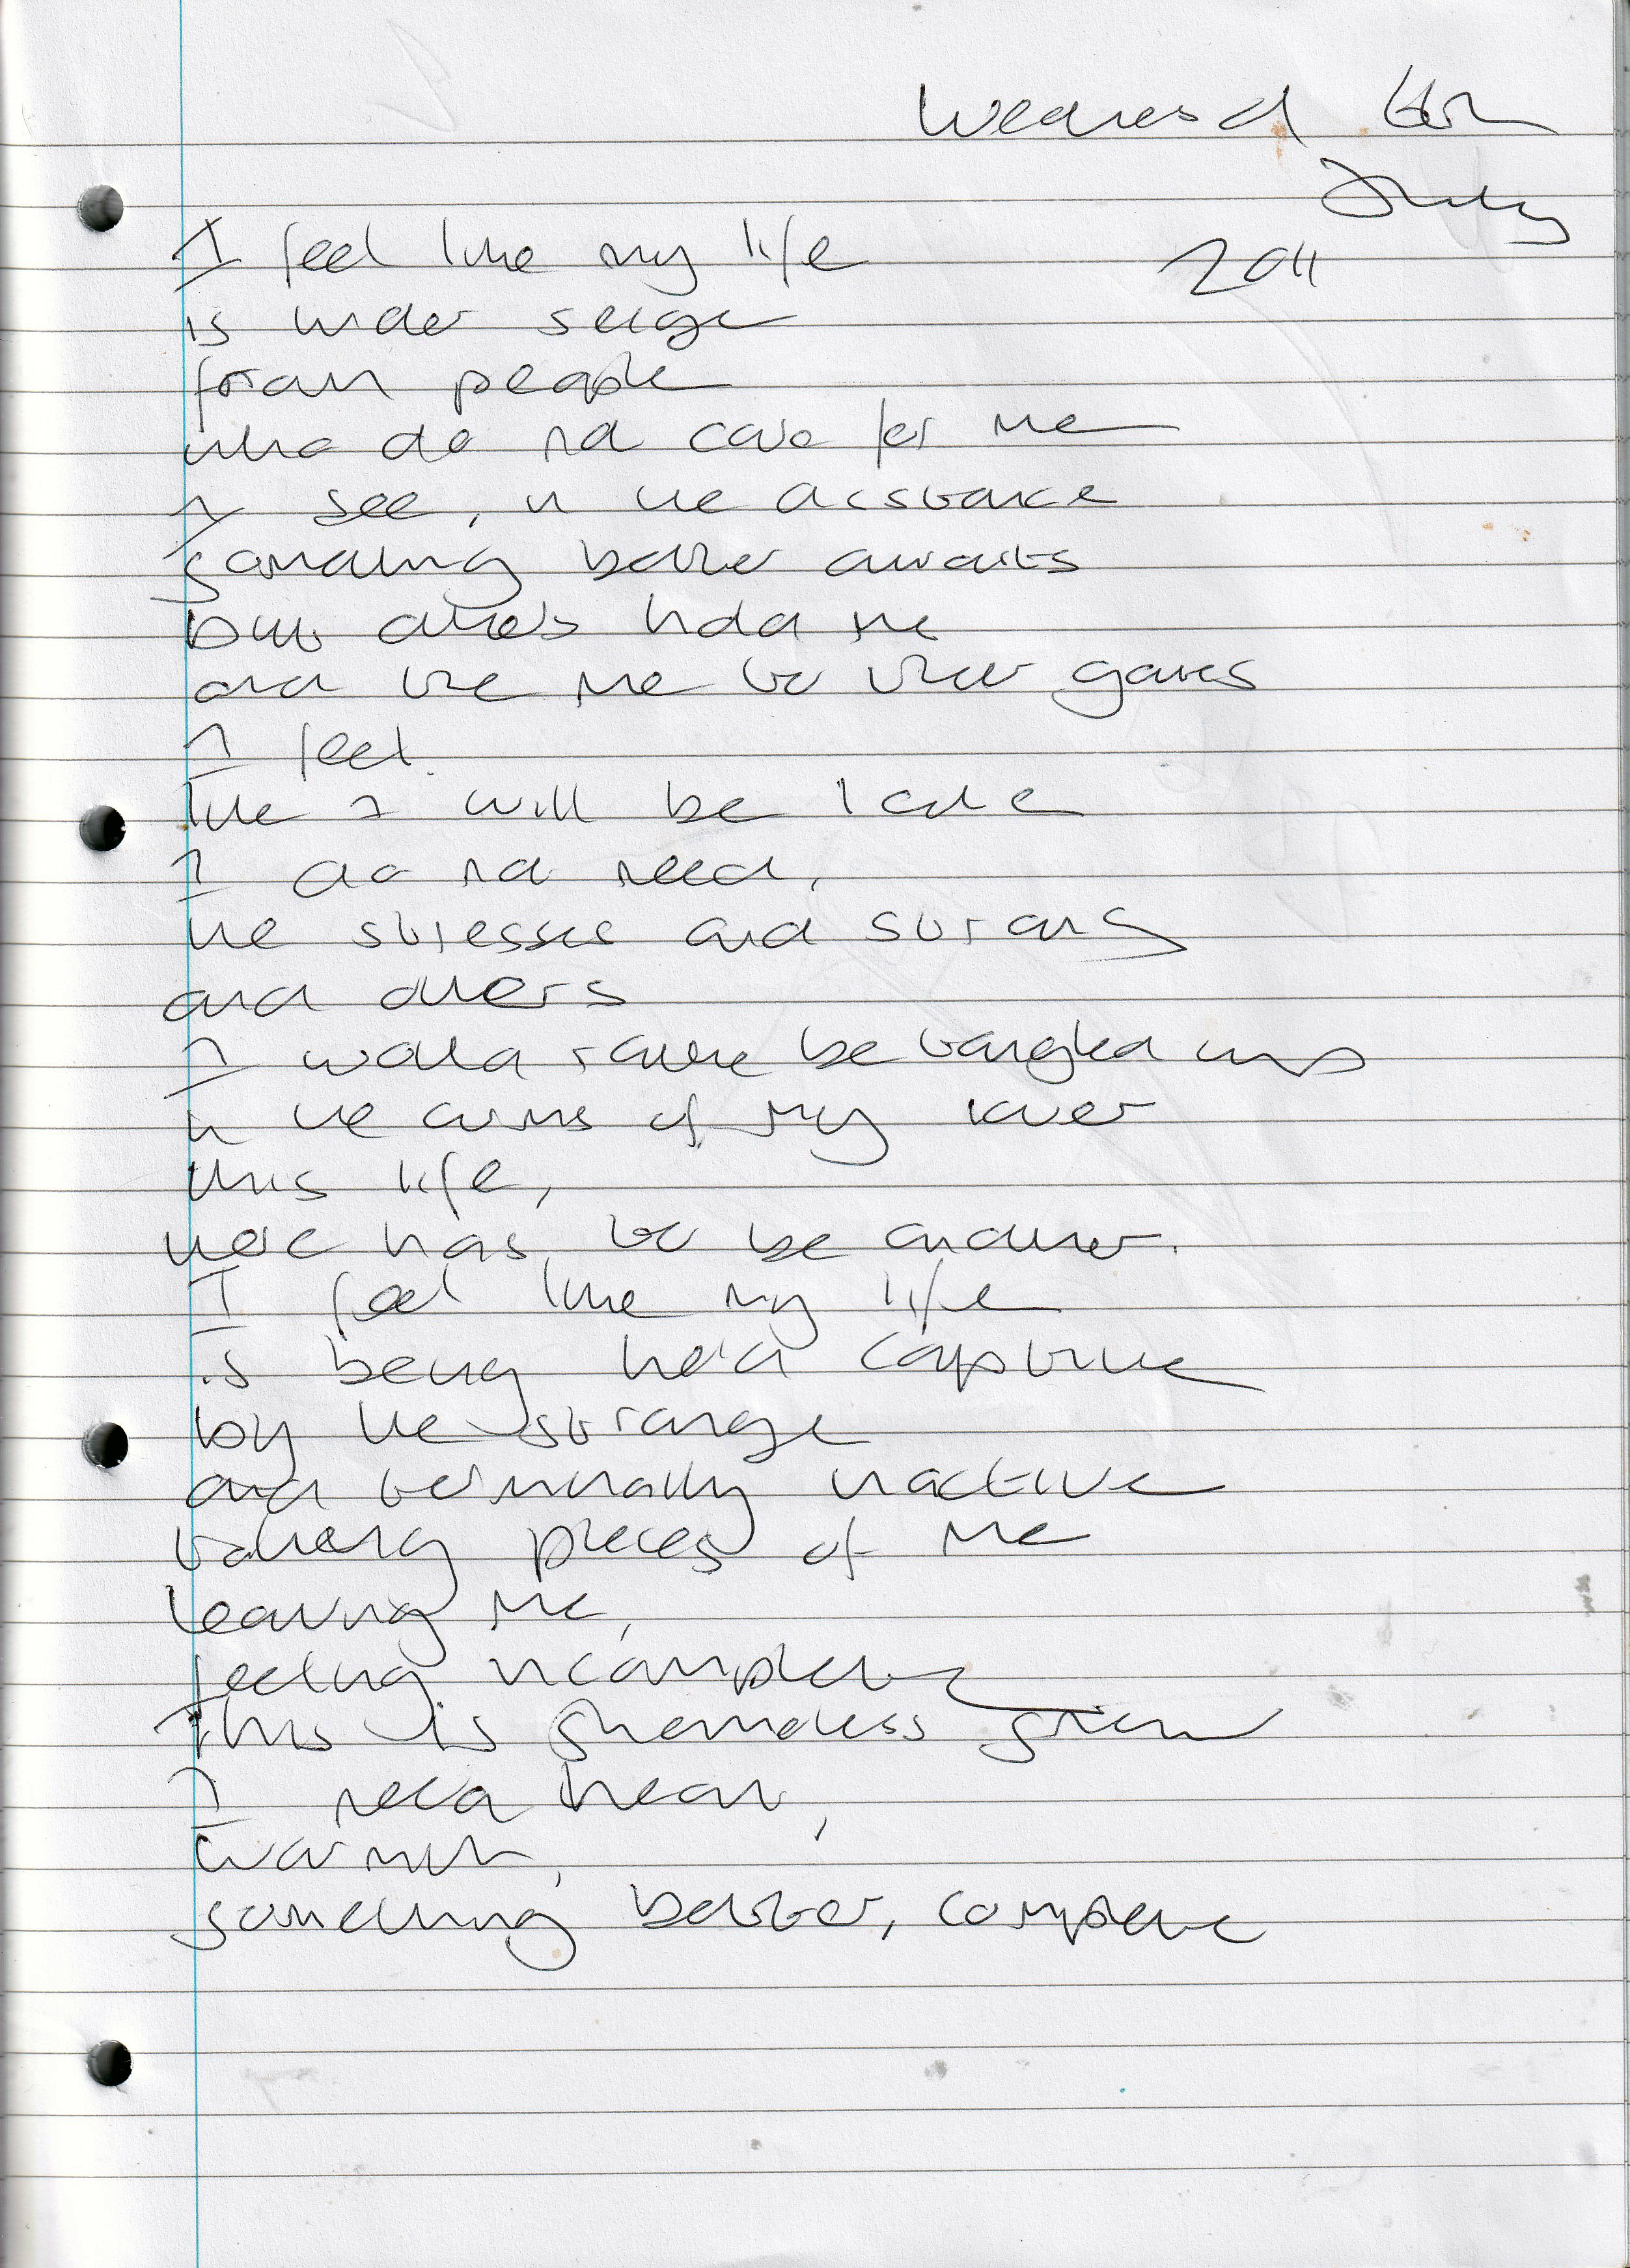 Wednesd 6th
July
2011
I feel like my life
is under seige
from people
who do not care for me
I see, in the distance
something better awaits
but others hold me
and tie me to their games
I feel
like I will be late
I do not need,
the stresses and strains
and others
I would rather be tangled up
in the arms of my lover
this life,
there has to be another.
I feel like my life
is being held captive
by the strange
and terminally inactive
taking pieces of me
leaving me,
feeling incomplete
This is shameless
I need heat,
warmth,
something better, complete